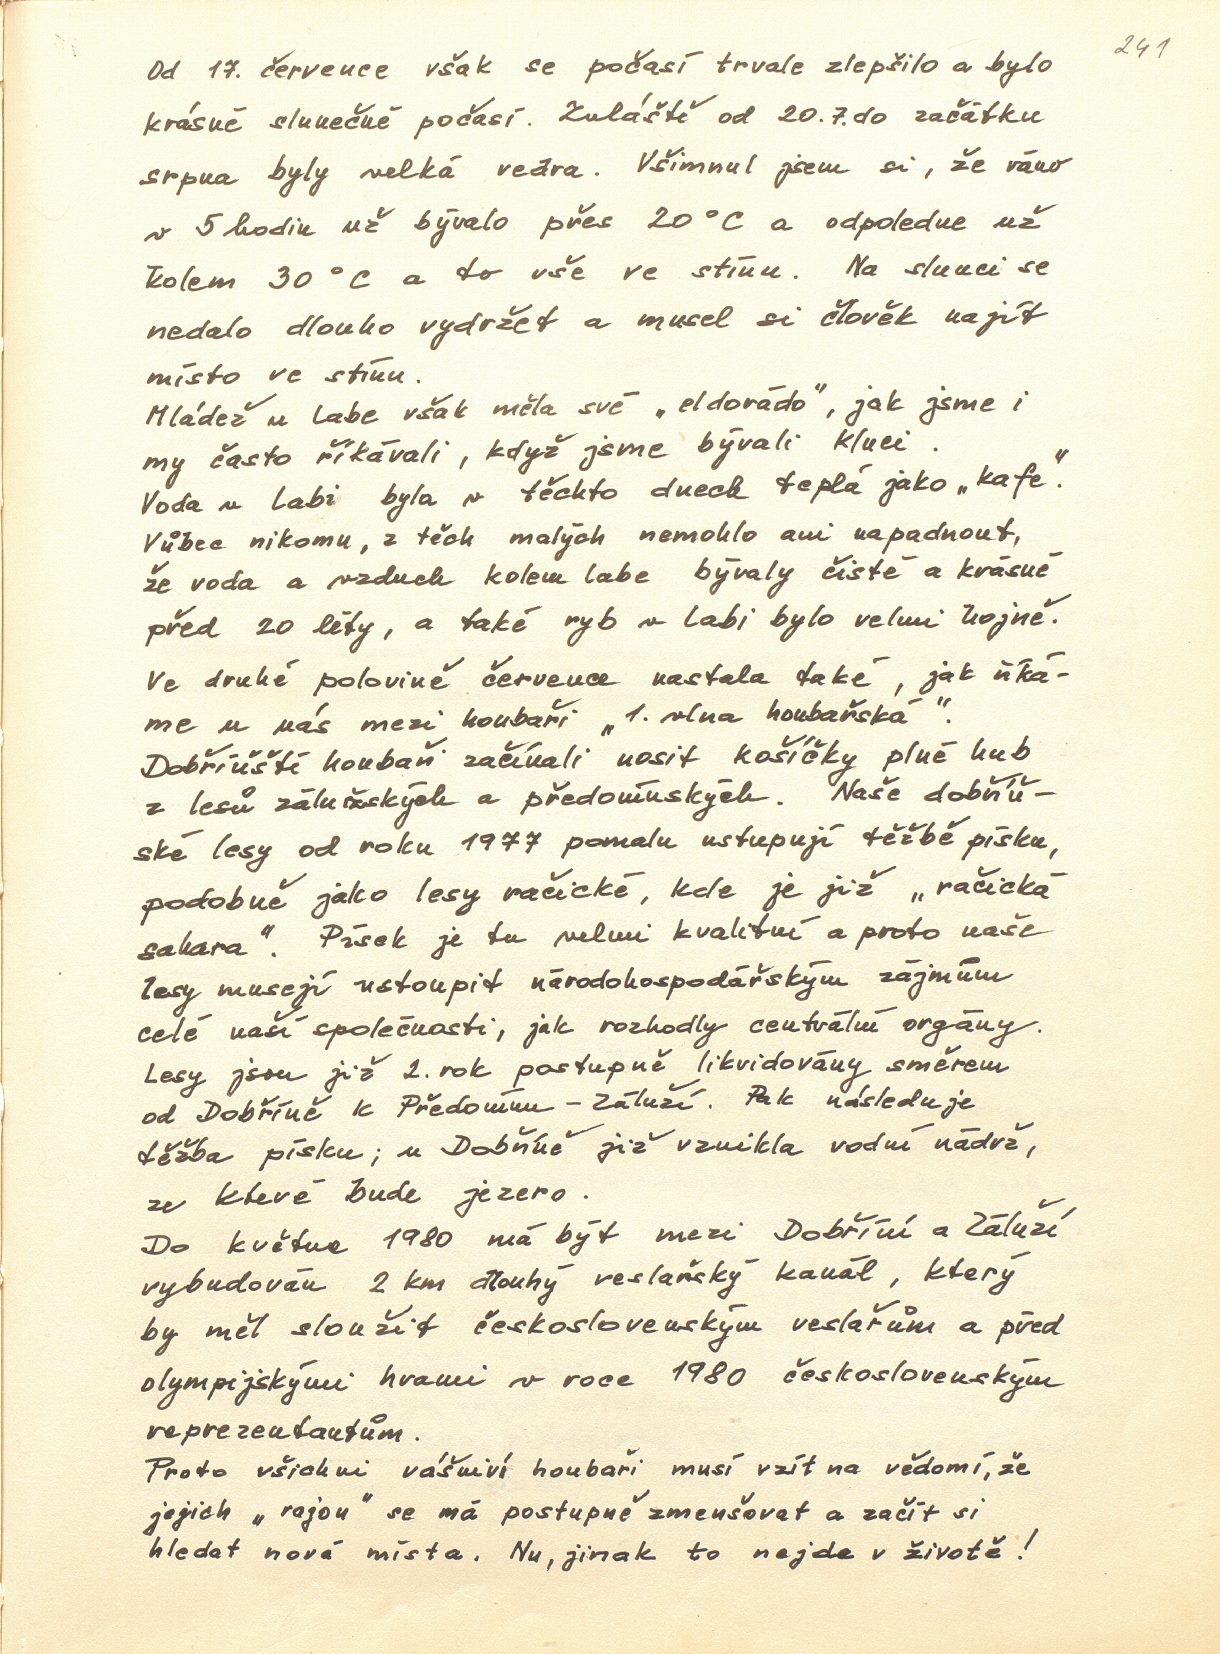 241
Od 17. července však se počasí trvale zlepšilo a bylo
krásné slunečné počasí. Zvláště od 20.7. do začátku
srpna byly velká vedra. Všimnul jsem si, že ráno
v 5 hodin už bývalo přes 20 °C a odpoledne už
kolem 30 °C a to vše ve stínu. Na slunci se
nedalo dlouho vydržet a musel si člověk najít
místo ve stínu.
Mládež u Labe však měla své „eldorádo", jak jsme i
my často říkávali, když jsme bývali kluci.
Voda v Labi byla v těchto dnech teplá jako „kafe".
Vůbec nikomu, z těch malých nemohlo ani napadnout,
že voda a vzduch kolem Labe bývaly čisté a krásné
před 20 léty, a také ryb v Labi bylo velmi hojně.
Ve druhé polovině července nastala také, jak říká-
me u nás mezi houbaři „1. vlna houbařská".
Dobříňští houbaři začínali nosit košíčky plné hub
z lesů zálužských a předonínských. Naše dobříň-
ské lesy od roku 1977 pomalu ustupují těžbě písku,
podobně jako lesy račické, kde je již „račická
sahara". Písek je tu velmi kvalitní a proto naše
lesy musejí ustoupit národohospodářským zájmům
celé naší společnosti, jak rozhodly centrální orgány.
Lesy jsou již 2. rok postupně likvidovány směrem
od Dobříně k Předonínu - Záluží. Pak následuje
těžba písku; u Dobříně již vznikla vodní nádrž,
ze které bude jezero.
Do května 1980 má být mezi Dobříní a Záluží
vybudován 2 km dlouhý veslařský kanál, který
by měl sloužit československým veslařům a před
olympijskými hrami v roce 1980 československým
reprezentantům.
Proto všichni vášniví houbaři musí vzít na vědomí, že
jejich „rajon" se má postupně zmenšovat a začít si
hledat nová místa. Nu, jinak to nejde v životě!